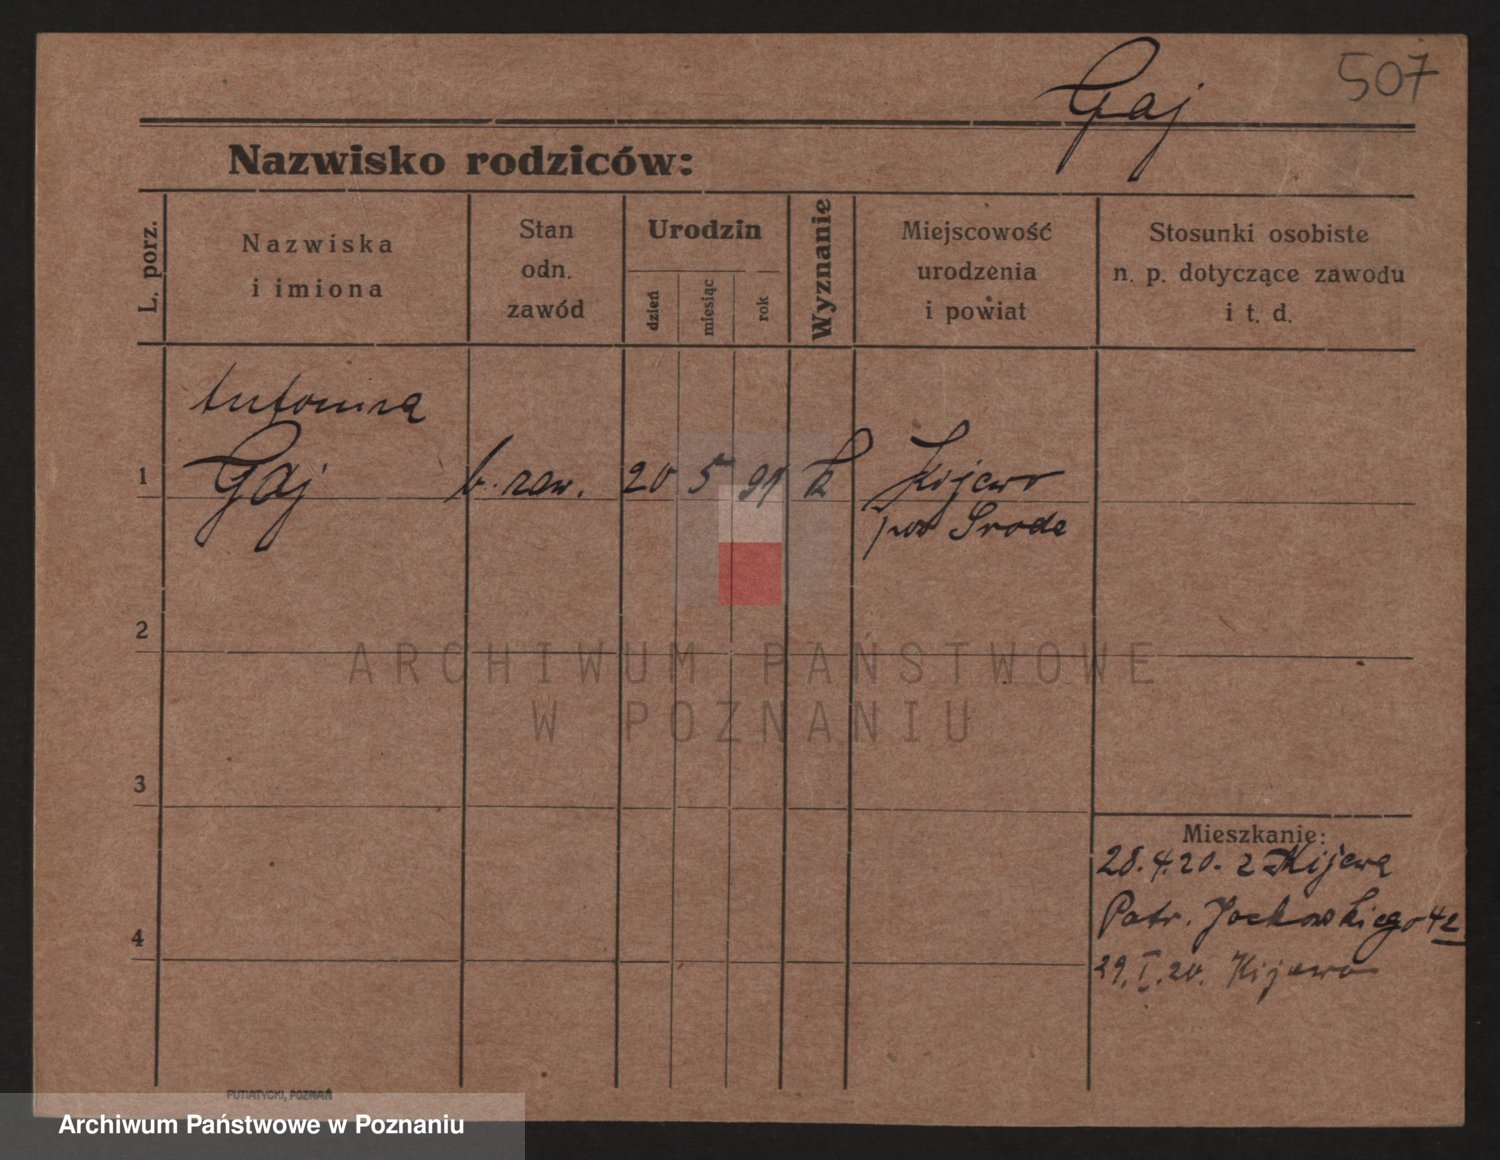 Gaj
507
Nazwisko rodziców:
L. porz.
Nazwiska
i imiona
Stan
odn.
zawód
Urodzin
dzień
miesiąc
rok
Wyznanie
Miejscowość
urodzenia
i powiat
Stosunki osobiste
n. p. dotyczące zawodu
i t. d.
Antonina
1 Gaj b. zaw. 20 5 91 k Kijewo
pow Sroda
2
ARCHIWUM PAŃSTWOWE
W POZNANIU
3
Mieszkanie:
28.4.20. z Kijewa
Patr. Jackowskiego 42
4
29.I.20. Kijewo
PUTIATYCKI, POZNAŃ
Archiwum Państwowe w Poznaniu